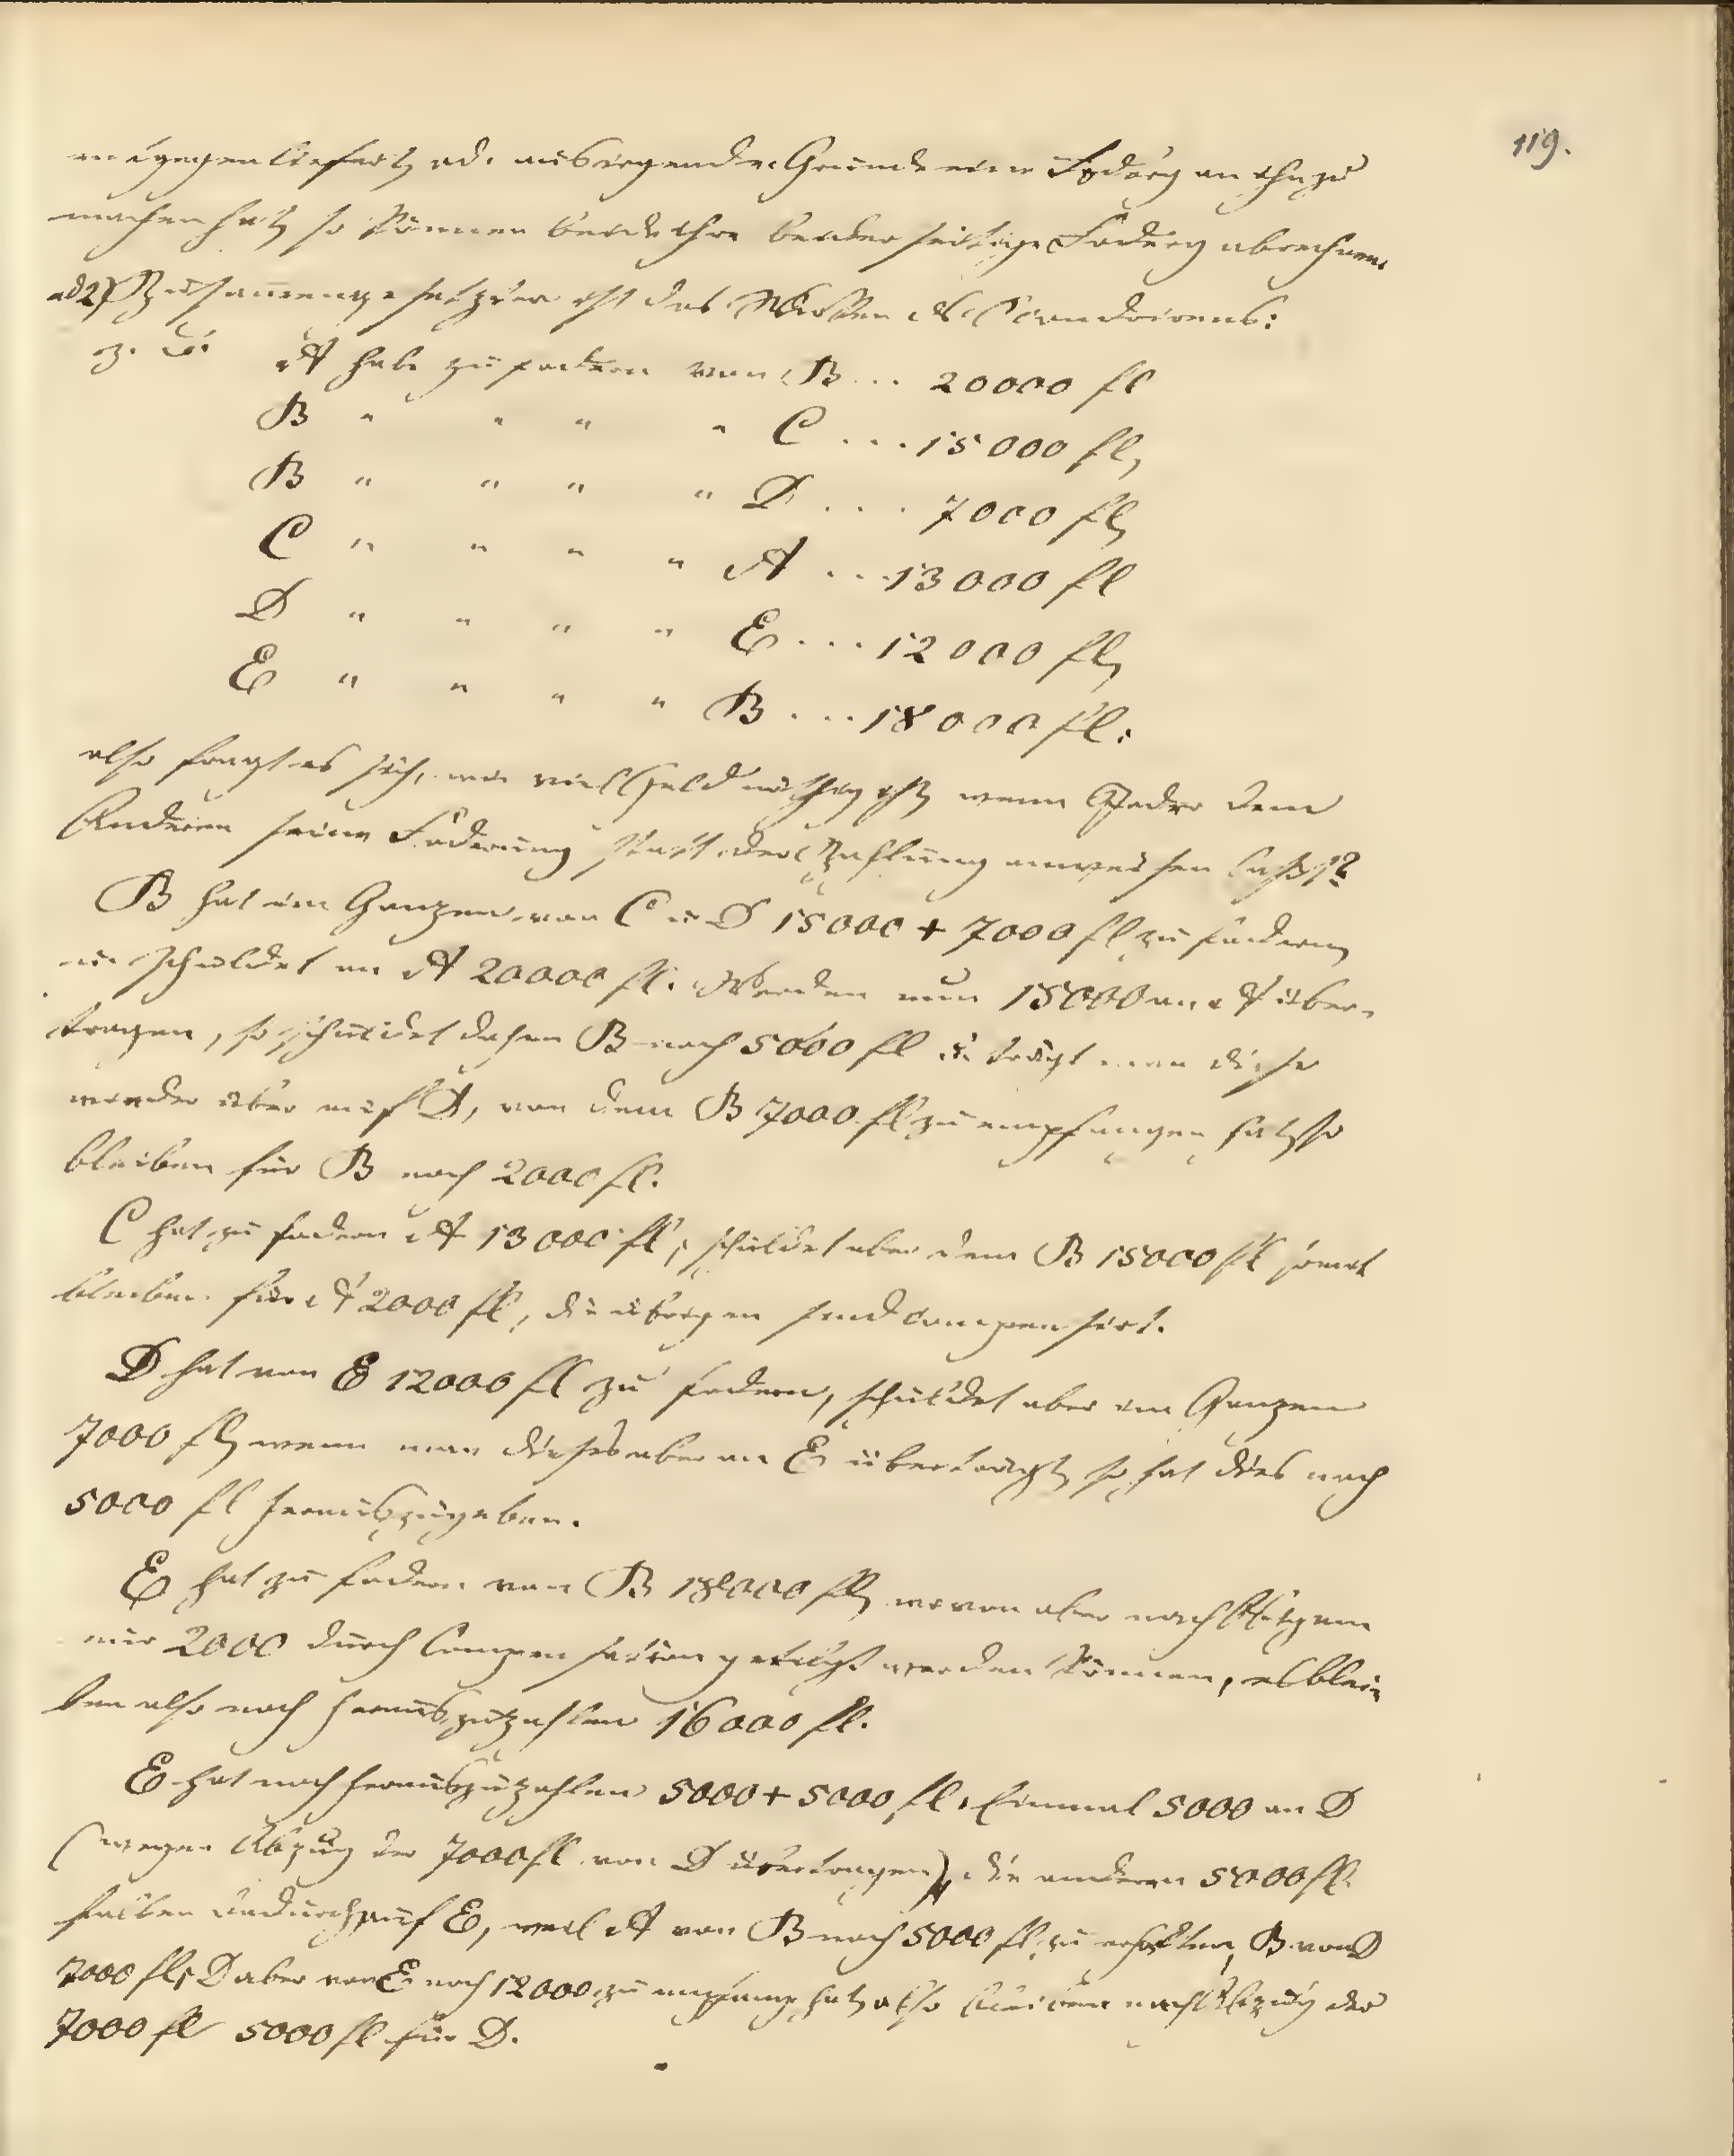 119.
entgegen liefert, od. aus irgend e. Grunde eine Foderg an ihn zu
machen hat, so können beide ihre beiderseitige Foderg abrechnen.
ad 2) Zusammengesetzter ist das Wesen des Scontrirens:
z. B. A habe zu fodern von B... 20000 fl
B " " " " C ....15000 fl,
B " " " " D .... 7000 fl,
C " " " " A ...13000 fl
D " " " " E ...12000 fl,
E " " " " B ...18000 fl.
also fragt es sich, wie viel Geld nöthig ist, wenn Jeder dem
Anderen seine Foderung statt der Zahlung anweisen läßt?
B hat im Ganzen von C u D 15000 + 7000 fl zu fodern,
u. schuldet an A 20000 fl. Werden nun 15000 an A über-
tragen, so schuldet daher B noch 5000 fl u. trägt man diese
wieder über auf D, von dem B 7000 fl zu empfangen hat, so
bleiben für B noch 2000 fl.
C hat zu fodern A 13000 fl, schuldet aber dem B 15000 fl somit
bleiben für A 2000 fl, die übrigen sind compensirt.
D hat von E 12000 fl zu fodern, schuldet aber im Ganzen
7000 fl, wenn man dieses aber an E überträgt, so hat dies noch
5000 fl herauszugeben.
E hat zu fodern von B 18000 fl, wovon aber nach Obigem
nur 2000 durch Compensation getilgt werden können, es blei-
ben also noch herauszuzahlen 16000 fl.
E hat noch herauszuzahlen 5000 + 5000 fl. Einmal 5000 an D
(wegen Abzug der 7000 fl von D übertragen), die anderen 5000 fl.
fallen dadurch auf E, weil A von B noch 5000 fl zu erhalten, B von D
7000 fl, D aber von E noch 12000 zu empfang. hat, also bleiben nach Abzug der
7000 fl 5000 fl für D.